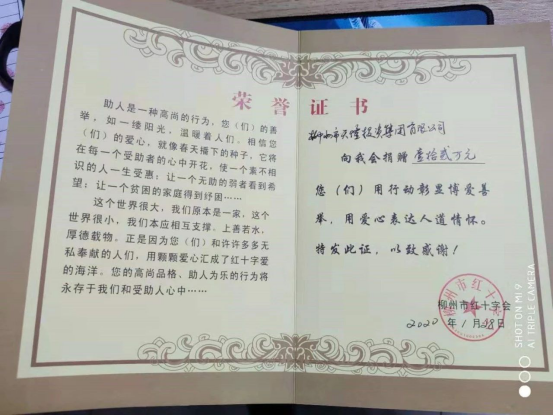 荣誉证书
助人是一种高尚的行为，您（们）的善
举，如一缕阳光，温暖着人们，相信您
（们）的爱心，就像春天播下的种子，它将
在每一个受助者的心中开花，使一个素不相
识的人一生受惠；让一个无助的弱者看到希
望；让一个贫困的家庭得到纾困……
这个世界很大，我们原本是一家，这个
世界很小，我们本应相互支撑。上善若水，
厚德载物。正是因为您（们）和许许多多无
私奉献的人们，用颗颗爱心汇成了红十字爱
的海洋。您的高尚品格、助人为乐的行为将
永存于我们和受助人心中……
柳州市天 投资集团有限公司
向我会捐赠 壹拾贰万元
您（们）用行动彰显博爱善
举，用爱心表达人道情怀。
特发此证，以致感谢！
柳州市红十字会
柳州市红十字会
2020年1月28日
SHOT ON MI 9
AI TRIPLE CAMERA